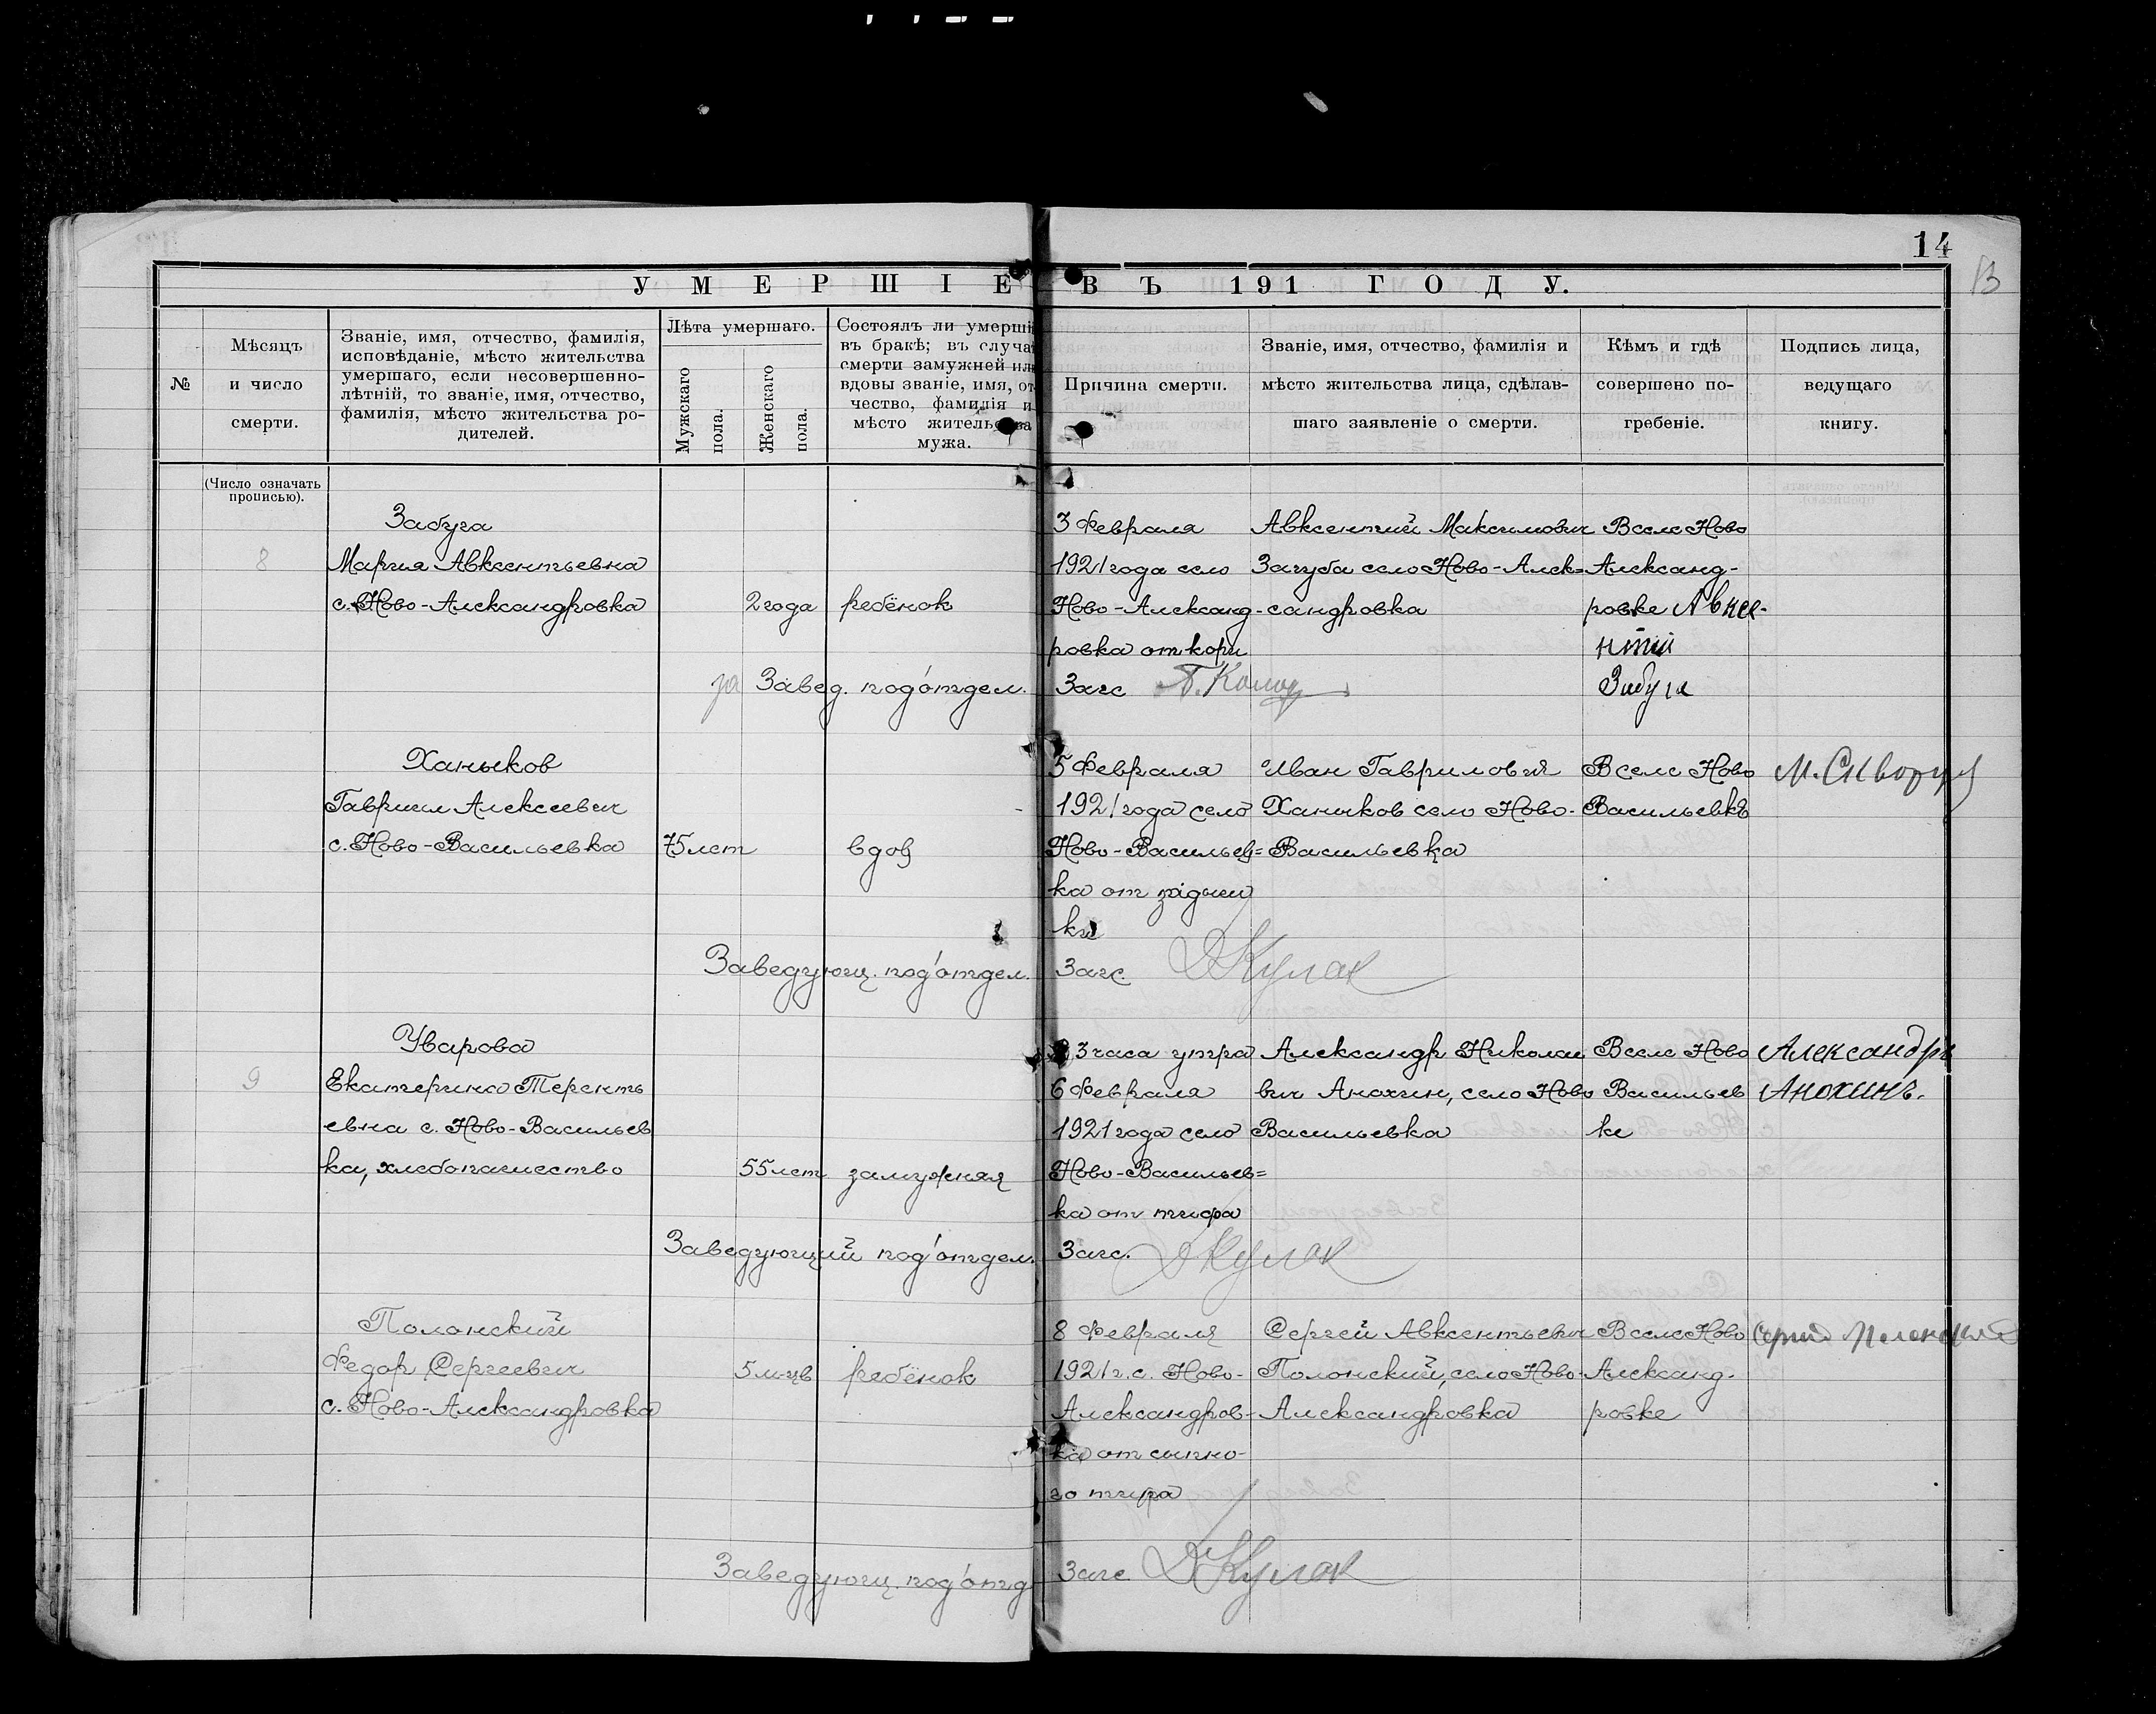 14
13
УМЕРШІЕ ВЪ 191 ГОДУ.
№
Мѣсяцъ
и число
смерти.
Званіе, имя, отчество, фамилія,
исповѣданіе, мѣсто жительства
умершаго, если несовершенно-
лѣтній, то званіе, имя, отчество,
фамилія, мѣсто жительства ро-
дителей.
Лѣта умершаго.
Мужскаго
пола.
Женскаго
пола.
Состоялъ ли умерші
въ бракѣ; въ случа
смерти замужней или
вдовы званіе, имя, от
чество, фамилія и
мѣсто жительства
мужа.
Причина смерти.
Званіе, имя, отчество, фамилія и
мѣсто жительства лица, сдѣлав-
шаго заявленіе о смерти.
Кѣмъ и гдѣ
совершено по-
гребеніе.
Подпись лица,
ведущаго
книгу.
(Число означать
прописью).
8
Забуга
Мария Авксентьевна
с. Ново-Александровка
2 года
ребёнок
3 Февраля
1921 года село
Ново-Александ-
ровка от кори
Авксентий Максимович
Загуба село Ново-Алек=
сандровка
В селе Ново
Александ-
ровке Авксе-
нтий
Забуга
за Завед. под'отдел. Загс
Ханыков
Гавриил Алексеевич
с. Ново-Васильевка
75 лет
вдов
5 Февраля
1921 года село
Ново-Васильев=
ка от задыш
ки
Иван Гаврилович
Ханыков село Ново-
Васильевка
В селе Ново
Васильевке
М. Скворцов
Заведующ. под'отдел. Загс. Кулак
9
Уварова
Екатерина Теренть
евна с. Ново-Васильев
ка, хлебопашество
55 лет
замужняя
В 3 часа утра
6 Февраля
1921 года село
Ново-Васильев=
ка от тифа
Александр Николае
вич Анохин, село Ново
Васильевка
В селе Ново
Васильев
ке
Александръ
Анохинъ.
Заведующий под'отдел. Загс. Кулак
Полонский
Федор Сергеевич
с. Ново-Александровка
5 м-цв
ребёнок
8 Февраля
1921 г. с. Ново-
Александров-
ка от сыпно-
го тифа
Сергей Авксентьевич
Полонский, село Ново-
Александровка
В селе Ново
Александ-
ровке
Сергий Полонский
Заведующ. под'отд Загс Кулак